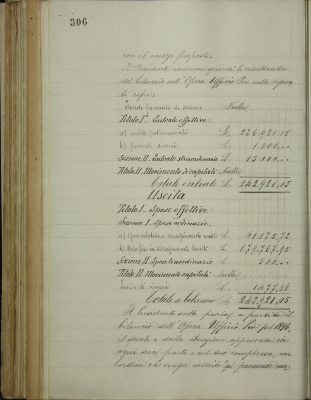 306
con il mezzo proposto.
Il Presidente riassume quindi le risultanze
del bilancio dell'Opera Ufficio Pio nelle seguen-
ti cifre:
Fondo presunto di cassa Nulla
Titolo I° Entrate effettive.
a) rendite patrimoniali L. 226,921.05
b) proventi diversi L. 1.000..
Sezione II. Entrate straordinarie L. 15000..
Titolo II. Movimento di capitali Nulla
Totale entrate L. 242,921.05
Uscita
Titolo I. Spese effettive.
Sezione I. Spese ordinarie
a) L. 61.175,72
b) L. 179,767.95
Sezione II. Spese straordinarie L. 500...
Titolo II. Movimento capitali Nulla
Fondo di riserva L. 1477,38
Totale a bilancio L. 242,921.05
Il Presidente mette poscia a partito il
bilancio dell'Opera Ufficio Pio pel 1896,
il quale è dalla Direzione approvato in
ogni sua parte e nel suo complesso, me